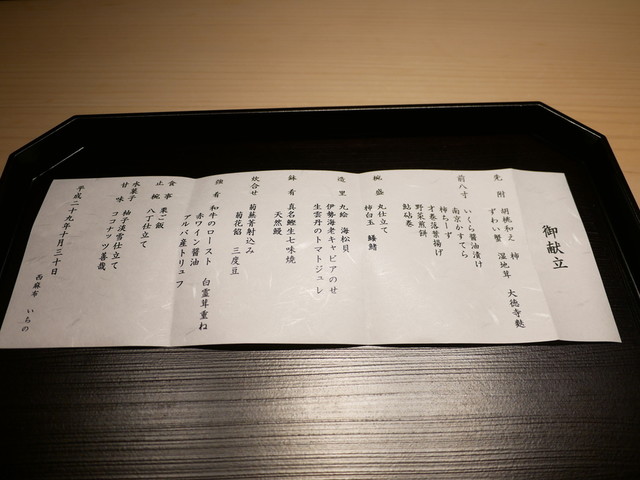 御献立
先附 胡桃和之 柿 大徳寺麩
ずわい蟹 湿地茸
前八寸 いくら醤油漬け
南京かすてら
柿ちーず
才巻落葉揚げ
野菜煎餅
鮎砧巻
椀盛 丸仕立て
柿白玉 鰭
造里 九絵 海松貝
伊勢海老キャビアのせ
生雲丹のトマトジュレ
鉢肴 真名鰹生七味焼
天然鰻
炊合せ 菊蕪菁射込み
菊花餡 三度豆
強肴 和牛のロースト 白霊茸重ね
赤ワイン醤油
アルバ産トリュフ
食事 栗ご飯
止椀 八丁仕立て
水菓子
甘味 柚子淡雪仕立て
ココナッツ善哉
平成二十九年十月三十日
西麻布 いちの